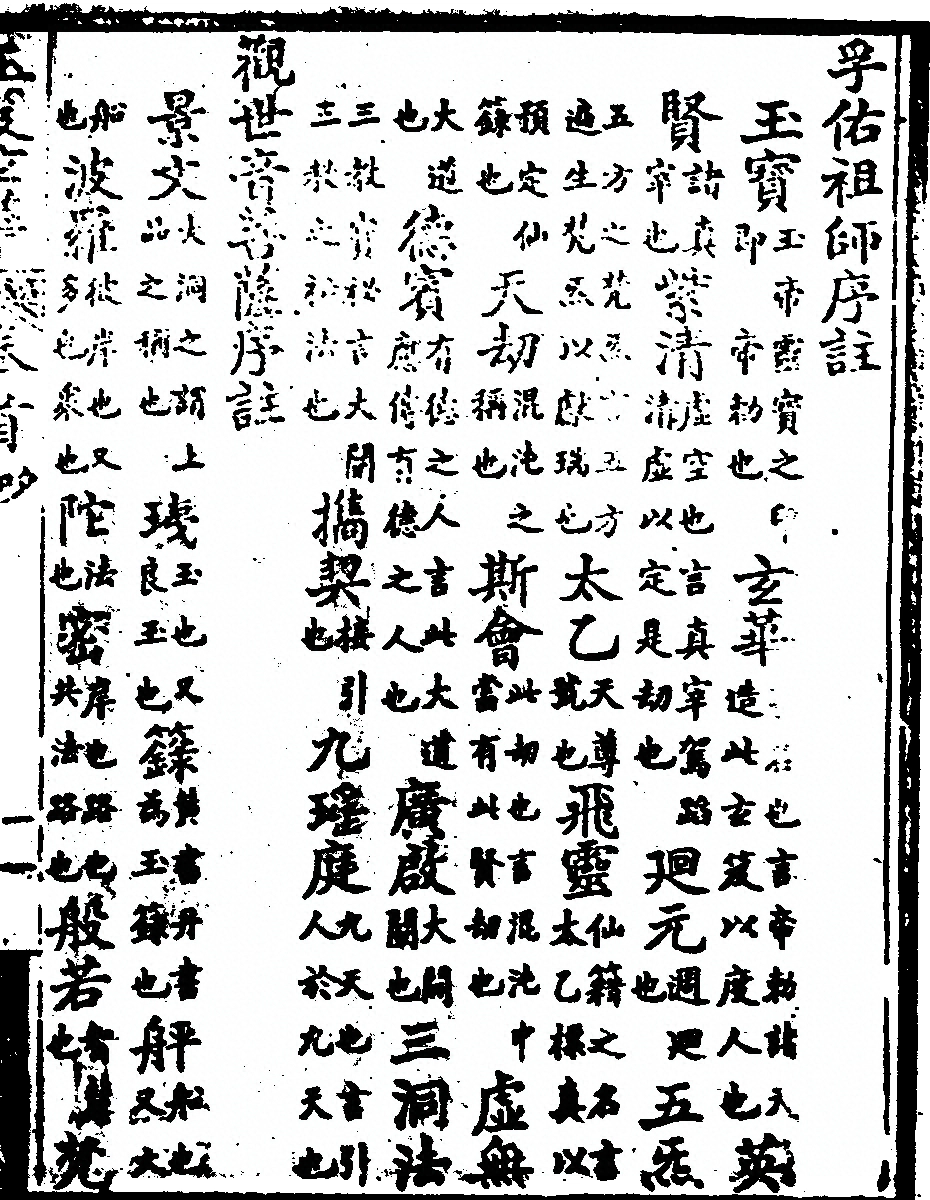 孚佑祖師序註
玉寶玉帝靈寶之印即帝勅也玄華也言帝勅諸天造此玄笈以度人也英
賢諸真宰也紫清虛空也言真宰駕蹈清虛以定是劫也廻元週廻也五炁
五方之梵炁言五方遍生梵炁以獻瑞也太乙天尊號也飛靈仙籍之名言太乙標真以
預定仙籙也天劫混沌之稱也斯會此劫也言混沌中當有此賢劫也虛無
大道也德賓有德之人言此大道應侍有德之人也廣啟大開闢也三洞法
三教寶秘言大開三教之秘法也攜契接引也九瑤庭九天也言引人於九天也
觀世音菩薩序註
景文大洞之謂上品之稱也玉也又良玉也籙黄書丹書為玉籙也平船也又大
船也波羅彼岸也又多也衆也陀法也密岸也路也共法路也般若智慧也梵